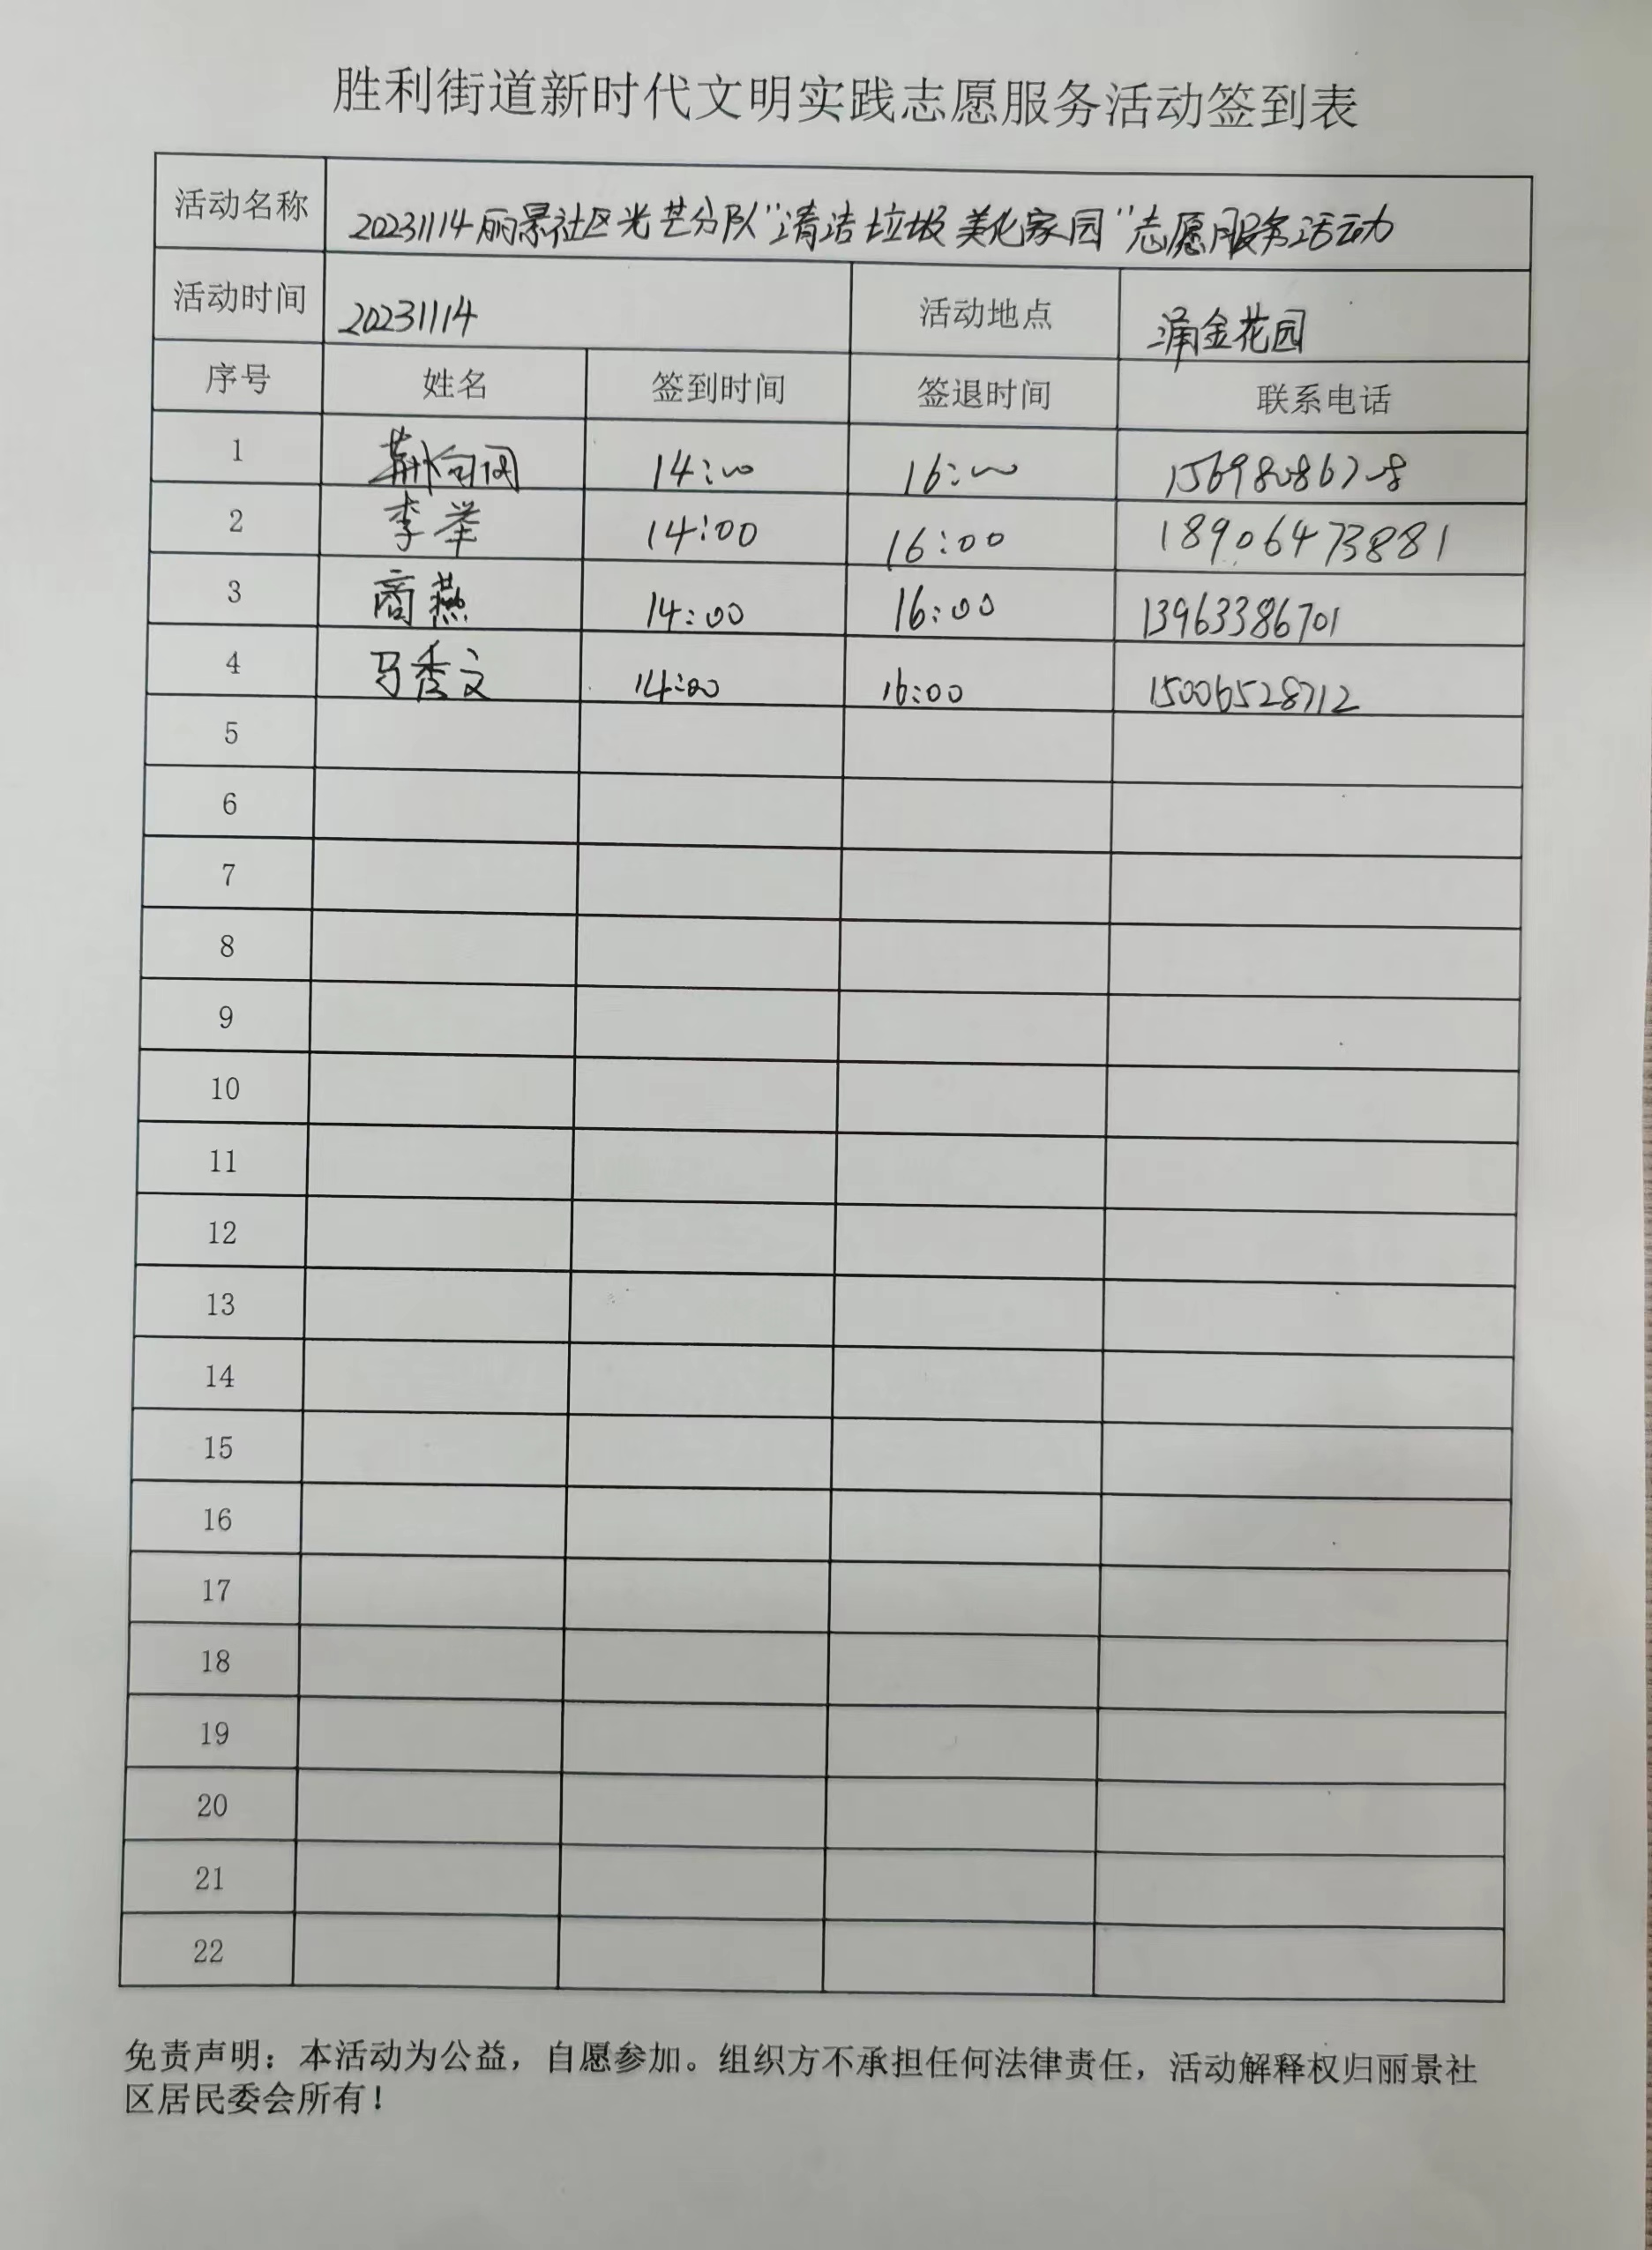 胜利街道新时代文明实践志愿服务活动签到表
活动名称 20231114丽景社区光芒分队"清洁垃圾 美化家园"志愿服务活动
活动时间 20231114 活动地点 涌金花园
序号 姓名 签到时间 签退时间 联系电话
1 14:00 16:00
2 李举 14:00 16:00 18906473881
3 商燕 14:00 16:00 13963386701
4 马秀文 14:00 16:00 15006528712
5
6
7
8
9
10
11
12
13
14
15
16
17
18
19
20
21
22
免责声明：本活动为公益，自愿参加。组织方不承担任何法律责任，活动解释权归丽景社
区居民委会所有！